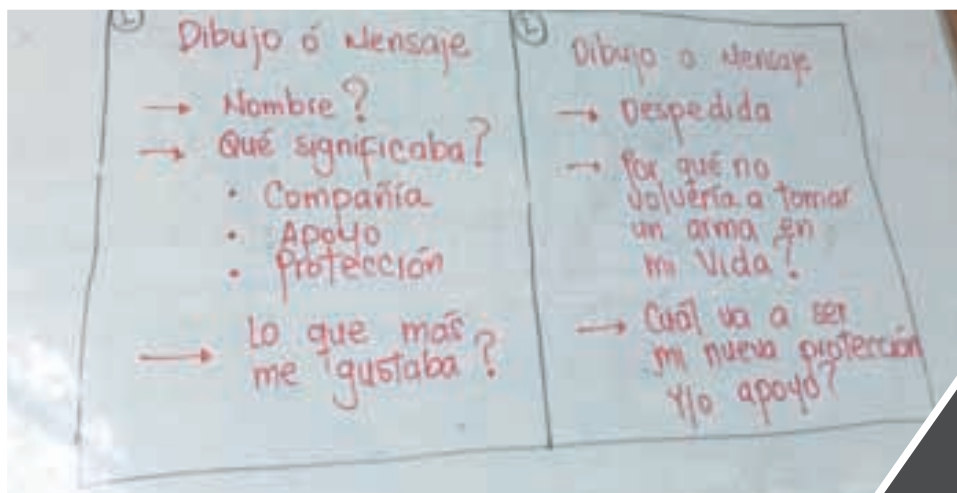 Dibujo ó Mensaje
→ Nombre?
→ Qué significaba?
• Compañía
• Apoyo
• Protección
→ Lo que más
me gustaba?
Dibujo o Mensaje
→ Despedida
→ Por qué no
volvería a tomar
un arma en
mi vida?
→ Cuál va a ser
mi nueva protección
y/o apoyo?